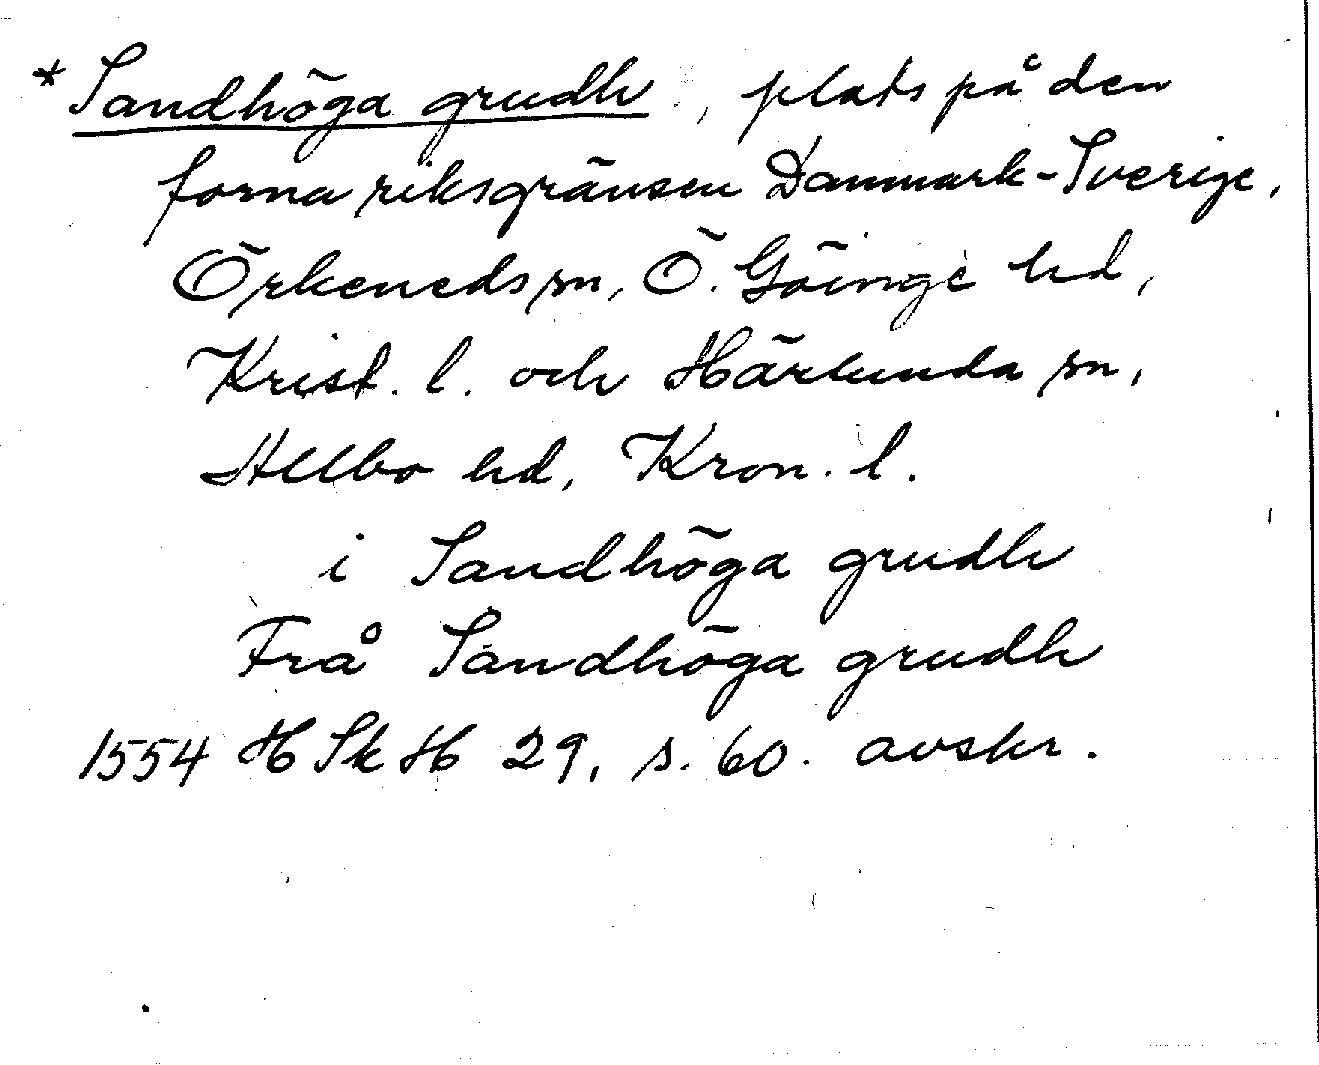 * Sandhöga grudh, plats på den
forna riksgränsen Danmark-Sverige,
Örkeneds sn, Ö. Göinge hd,
Krist. l. och Härlunda sn,
Allbo hd, Kron. l.
i Sandhöga grudh
Frå Sandhöga grudh
1554 HSkH 29, s. 60. avskr.